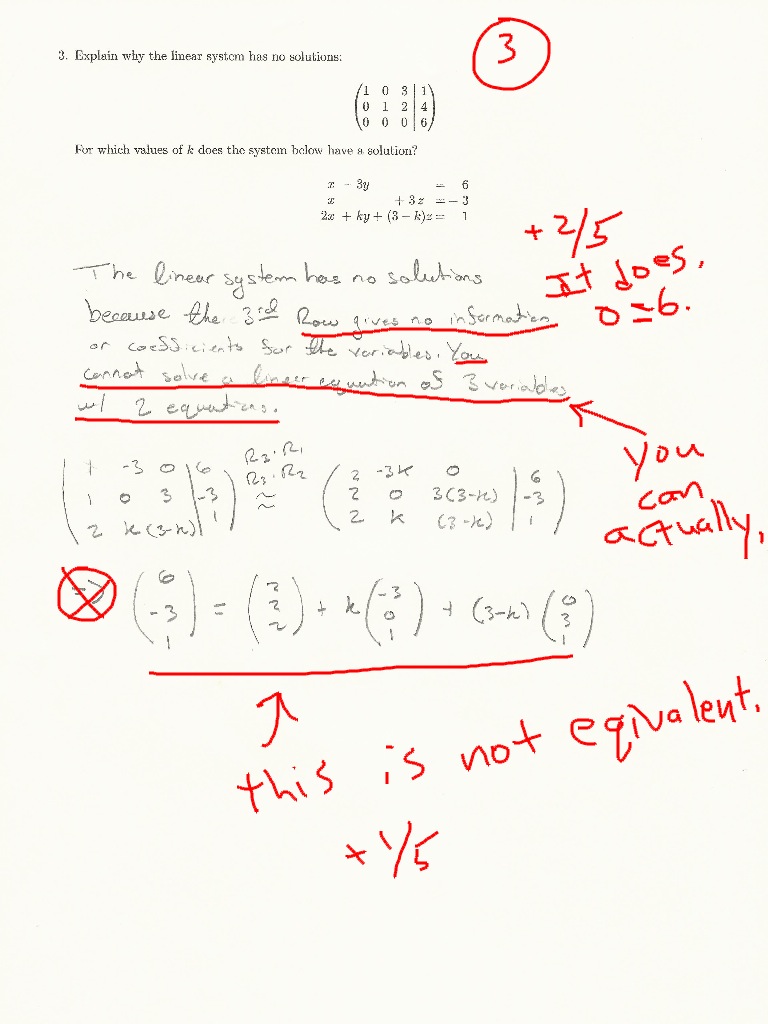 3
3. Explain why the linear system has no solutions:
1 0 3 | 1
0 1 2 | 4
0 0 0 | 6
For which values of k does the system below have a solution?
x - 3y = 6
x + 3z = - 3
2x + ky + (3 - k)z = 1
+ 2/5
It does.
0=6.
The linear system has no solutions
because the 3rd Row gives no information
or coefficients for the variables. You
cannot solve a linear equation of 3 variables
w/ 2 equations.
you
can
actually.
1 -3 0 | 6
1 0 3 | -3
2 k (3-k) | 1
R3·R1
R3·R2
~
~
2 -3k 0 | 6
2 0 3(3-k) | -3
2 k (3-k) | 1
=> (6 -3 1) = (2 2 2) + k (-3 0 1) + (3-k) (0 3 1)
this is not eqivalent.
+ 1/5